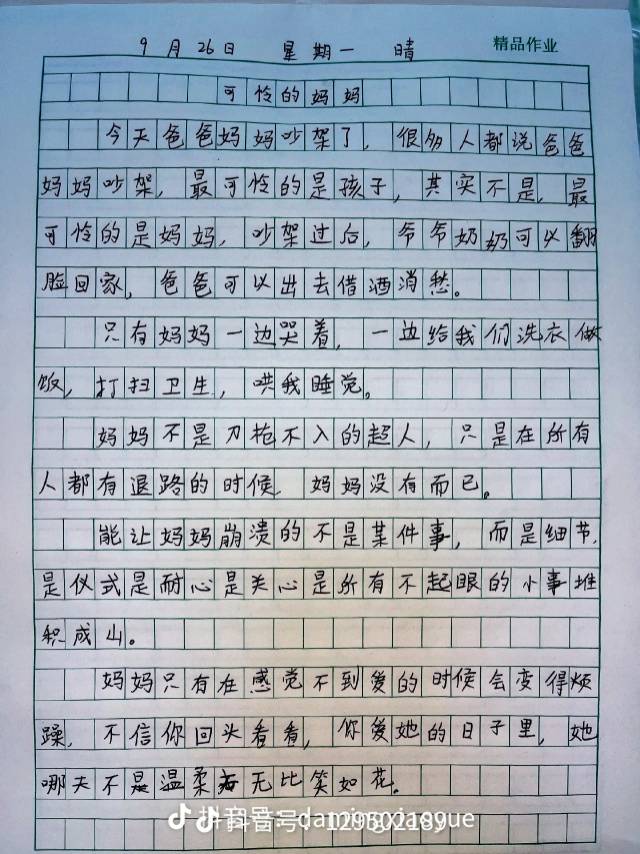 9月26日 星期一 晴 精品作业
可怜的妈妈
今天爸爸妈妈吵架了，很多人都说爸爸
妈妈吵架，最可怜的是孩子，其实不是，最
可怜的是妈妈，吵架过后，爷爷奶奶可以翻
脸回家，爸爸可以出去借酒消愁。
只有妈妈一边哭着，一边给我们洗衣做
饭，打扫卫生，哄我睡觉。
妈妈不是刀枪不入的超人，只是在所有
人都有退路的时候，妈妈没有而已。
能让妈妈崩溃的不是某件事，而是细节，
是仪式是耐心是关心是所有不起眼的小事堆
积成山。
妈妈只有在感觉不到爱的时候会变得烦
躁，不信你回头看看，你爱她的日子里，她
哪天不是温柔无比笑如花。
抖音号：